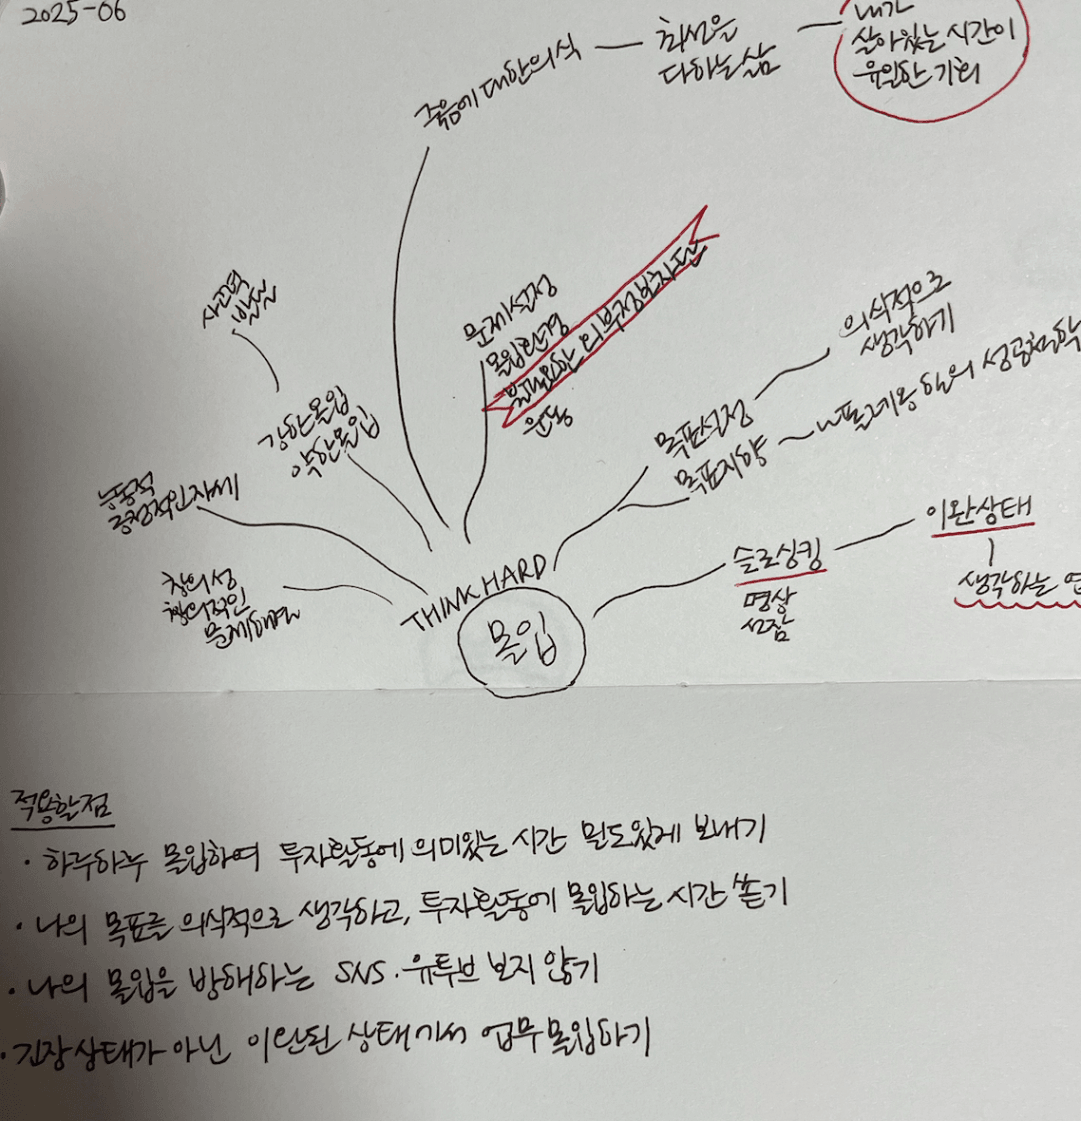 2025-06
죽음에 대한 의식
최선을
다하는 삶
내가
살아있는 시간이
유일한 기회
사고력
발달
강한몰입
약한몰입
능동적
긍정적인자세
창의성
창의적인
문제해결
문제설정
몰입환경
불필요한 외부정보차단
운동
목표설정
목표지향
의식적으로
생각하기
슬로싱킹
명상
선잠
이완상태
생각하는
THINK HARD
몰입
적용할점
· 하루하루 몰입하여 투자활동에 의미있는 시간 밀도있게 보내기
· 나의 목표를 의식적으로 생각하고, 투자활동에 몰입하는 시간 쏟기
· 나의 몰입을 방해하는 SNS · 유투브 보지 않기
· 긴장상태가 아닌 이완된 상태에서 업무몰입하기